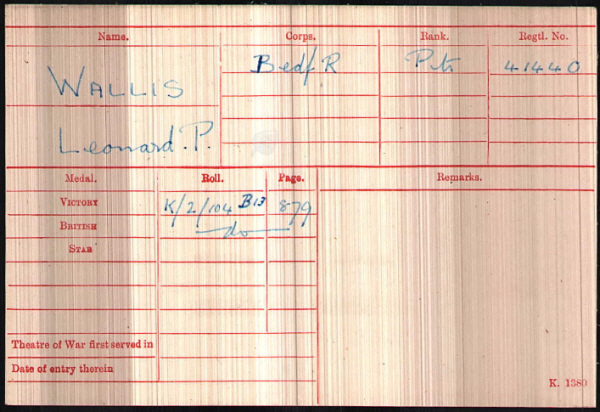 Name. Corps. Rank. Regtl. No.
WALLIS Bedf R Pte 41440
Leonard. P.
Medal. Roll. Page. Remarks.
VICTORY K/2/104 B13 879
BRITISH do
STAR
Theatre of War first served in
Date of entry therein
K. 1380